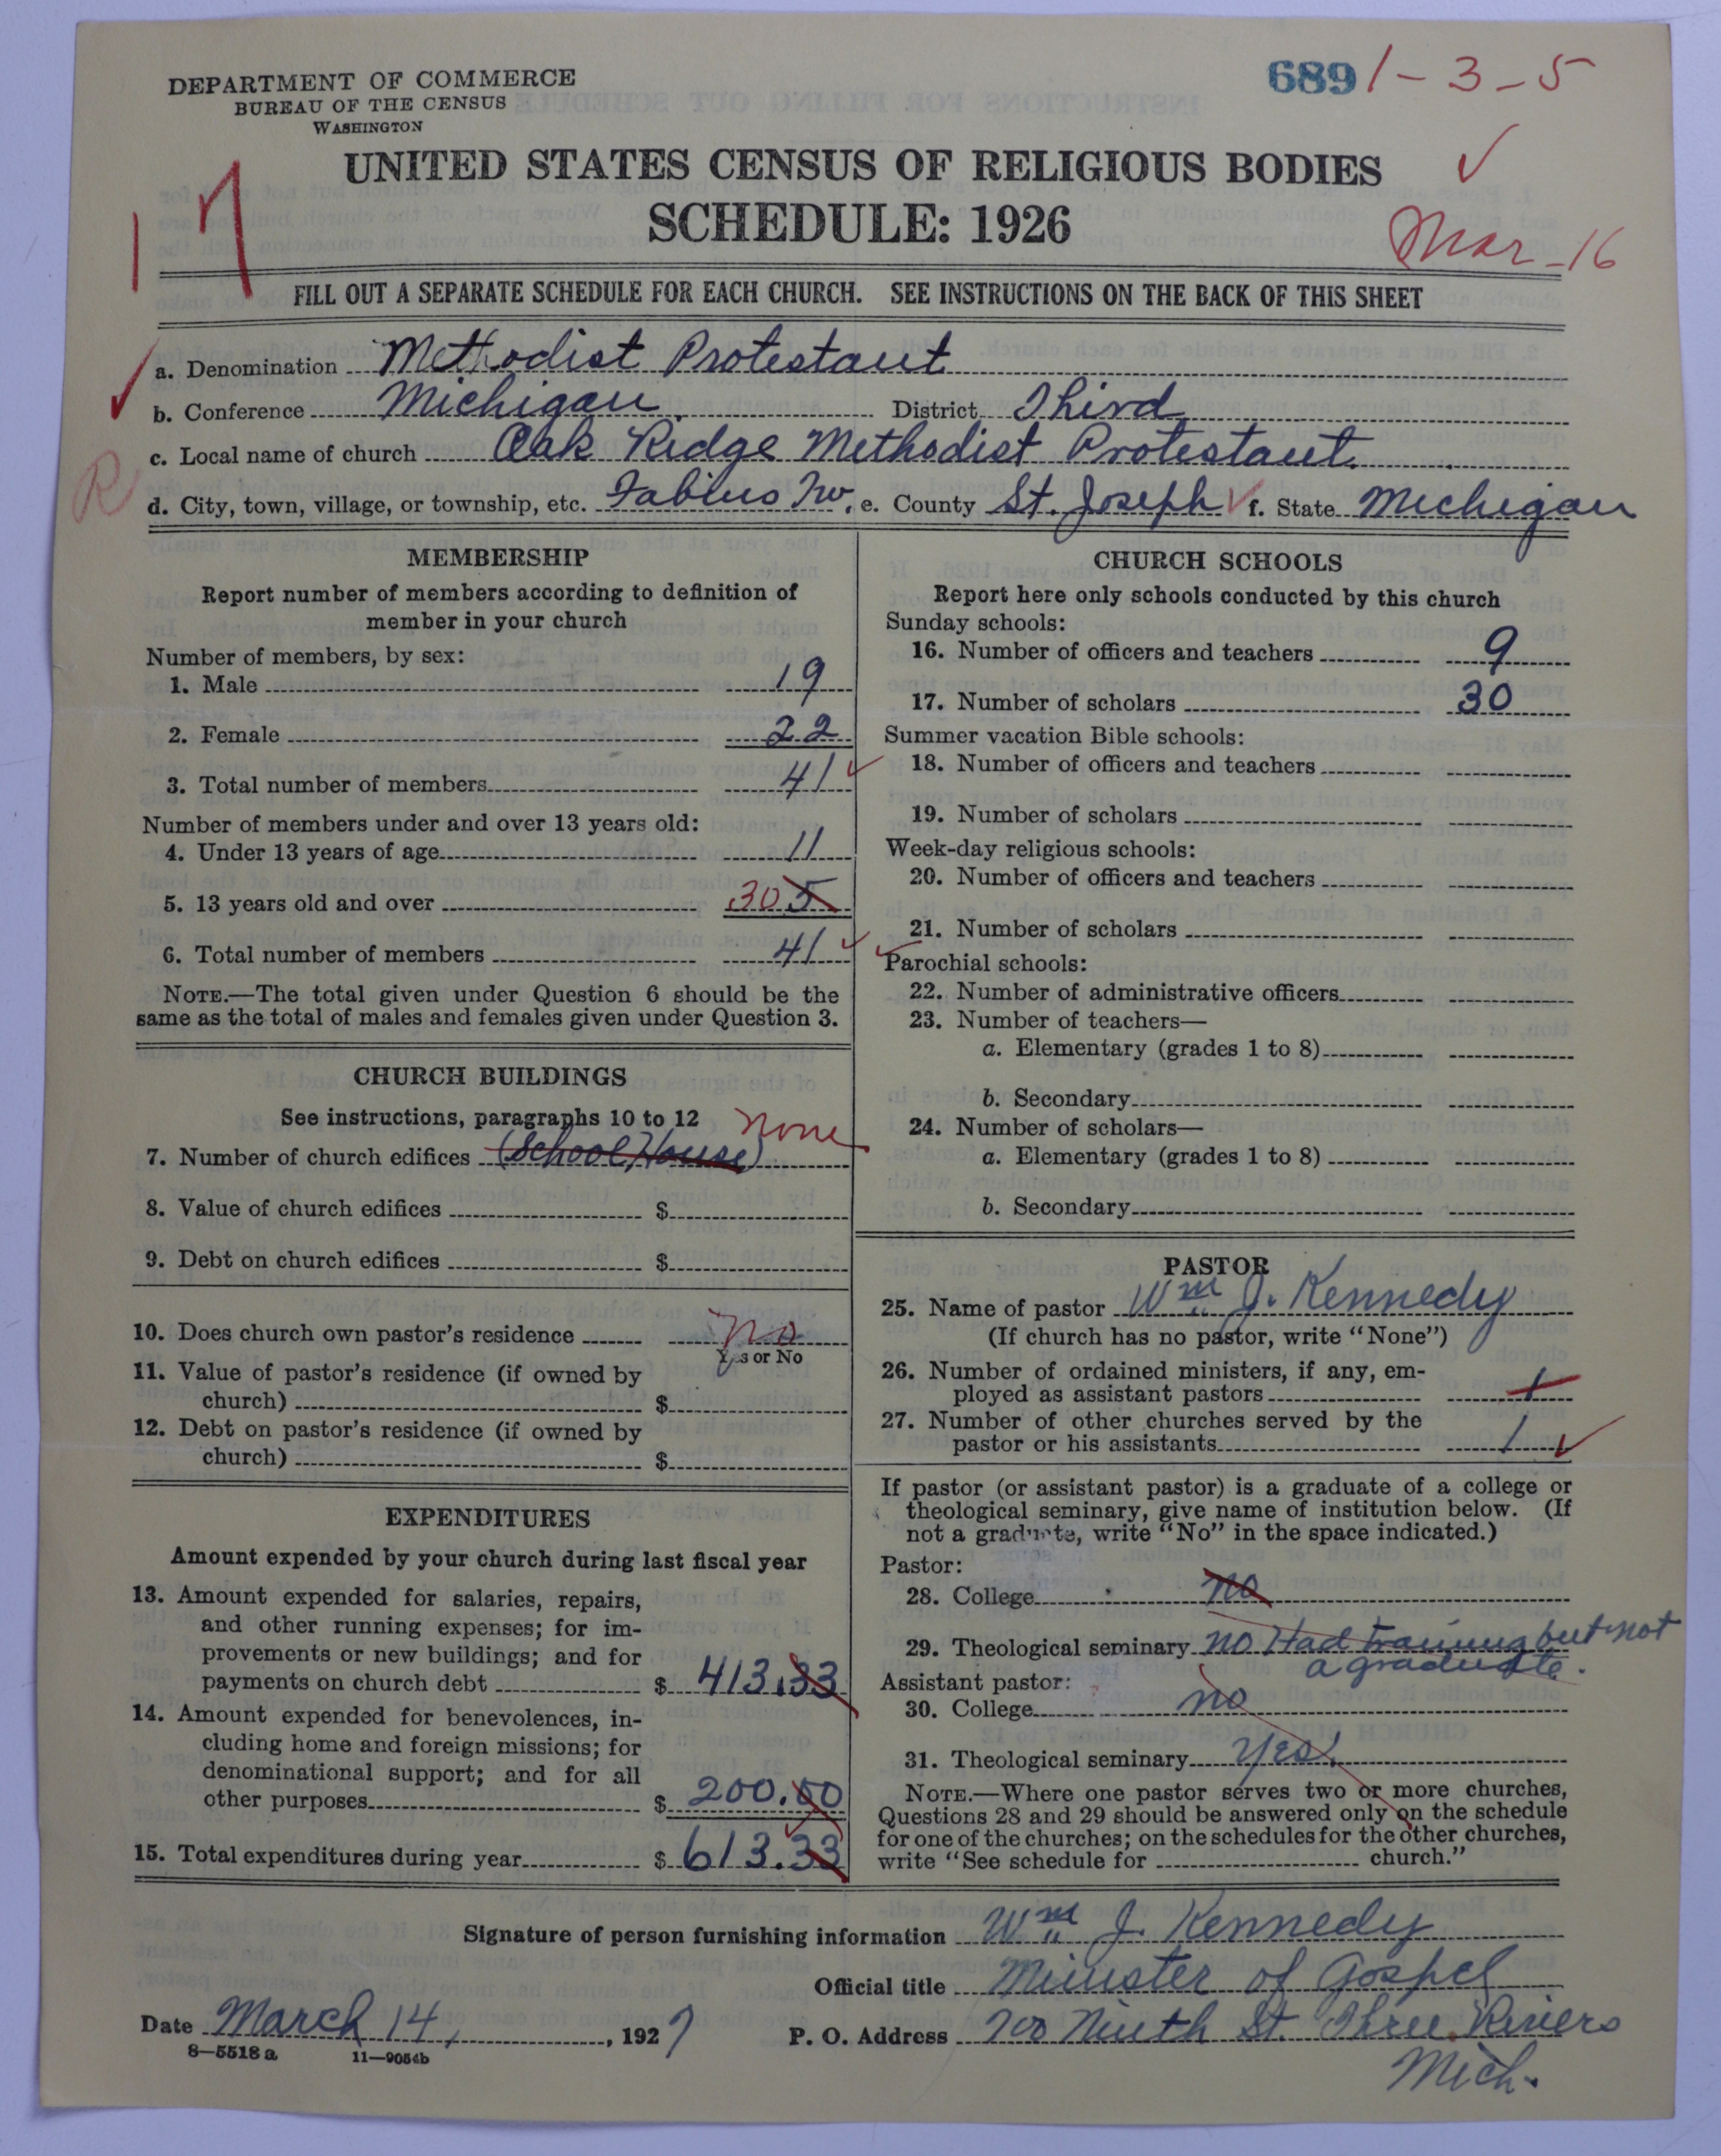 DEPARTMENT OF COMMERCE
BUREAU OF THE CENSUS
WASHINGTON
689 1-3-5
17
UNITED STATES CENSUS OF RELIGIOUS BODIES
SCHEDULE: 1926
Mar-16
FILL OUT A SEPARATE SCHEDULE FOR EACH CHURCH. SEE INSTRUCTIONS ON THE BACK OF THIS SHEET
a. Denomination Methodist Protestant
b. Conference Michigan. District Third
c. Local name of church Oak Ridge Methodist Protestant.
R
d. City, town, village, or township, etc. Fabius Tw. e. County St. Joseph f. State Michigan
MEMBERSHIP
Report number of members according to definition of
member in your church
Number of members, by sex:
1. Male 19
2. Female 22
3. Total number of members 41
Number of members under and over 13 years old:
4. Under 13 years of age 11
5. 13 years old and over 30 5
6. Total number of members 41
NOTE.—The total given under Question 6 should be the
same as the total of males and females given under Question 3.
CHURCH BUILDINGS
See instructions, paragraphs 10 to 12
none
7. Number of church edifices (School House)
8. Value of church edifices $
9. Debt on church edifices $
10. Does church own pastor's residence no
Yes or No
11. Value of pastor's residence (if owned by
church) $
12. Debt on pastor's residence (if owned by
church) $
EXPENDITURES
Amount expended by your church during last fiscal year
13. Amount expended for salaries, repairs,
and other running expenses; for im-
provements or new buildings; and for
payments on church debt $ 413.33
14. Amount expended for benevolences, in-
cluding home and foreign missions; for
denominational support; and for all
other purposes $ 200.00
15. Total expenditures during year $ 613.33
CHURCH SCHOOLS
Report here only schools conducted by this church
Sunday schools:
16. Number of officers and teachers 9
17. Number of scholars 30
Summer vacation Bible schools:
18. Number of officers and teachers
19. Number of scholars
Week-day religious schools:
20. Number of officers and teachers
21. Number of scholars
Parochial schools:
22. Number of administrative officers
23. Number of teachers—
a. Elementary (grades 1 to 8)
b. Secondary
24. Number of scholars—
a. Elementary (grades 1 to 8)
b. Secondary
PASTOR
25. Name of pastor Wm J. Kennedy
(If church has no pastor, write "None")
26. Number of ordained ministers, if any, em-
ployed as assistant pastors 1
27. Number of other churches served by the
pastor or his assistants 1
If pastor (or assistant pastor) is a graduate of a college or
theological seminary, give name of institution below. (If
not a graduate, write "No" in the space indicated.)
Pastor:
28. College no
29. Theological seminary no Had training but not
a graduate.
Assistant pastor:
30. College no
31. Theological seminary Yes!
NOTE.—Where one pastor serves two or more churches,
Questions 28 and 29 should be answered only on the schedule
for one of the churches; on the schedules for the other churches,
write "See schedule for church."
Signature of person furnishing information Wm J. Kennedy
Official title Minister of Gospel
Date March 14, 1927 P. O. Address 700 Ninth St. Three Rivers
Mich.
8—5518a 11—9054b